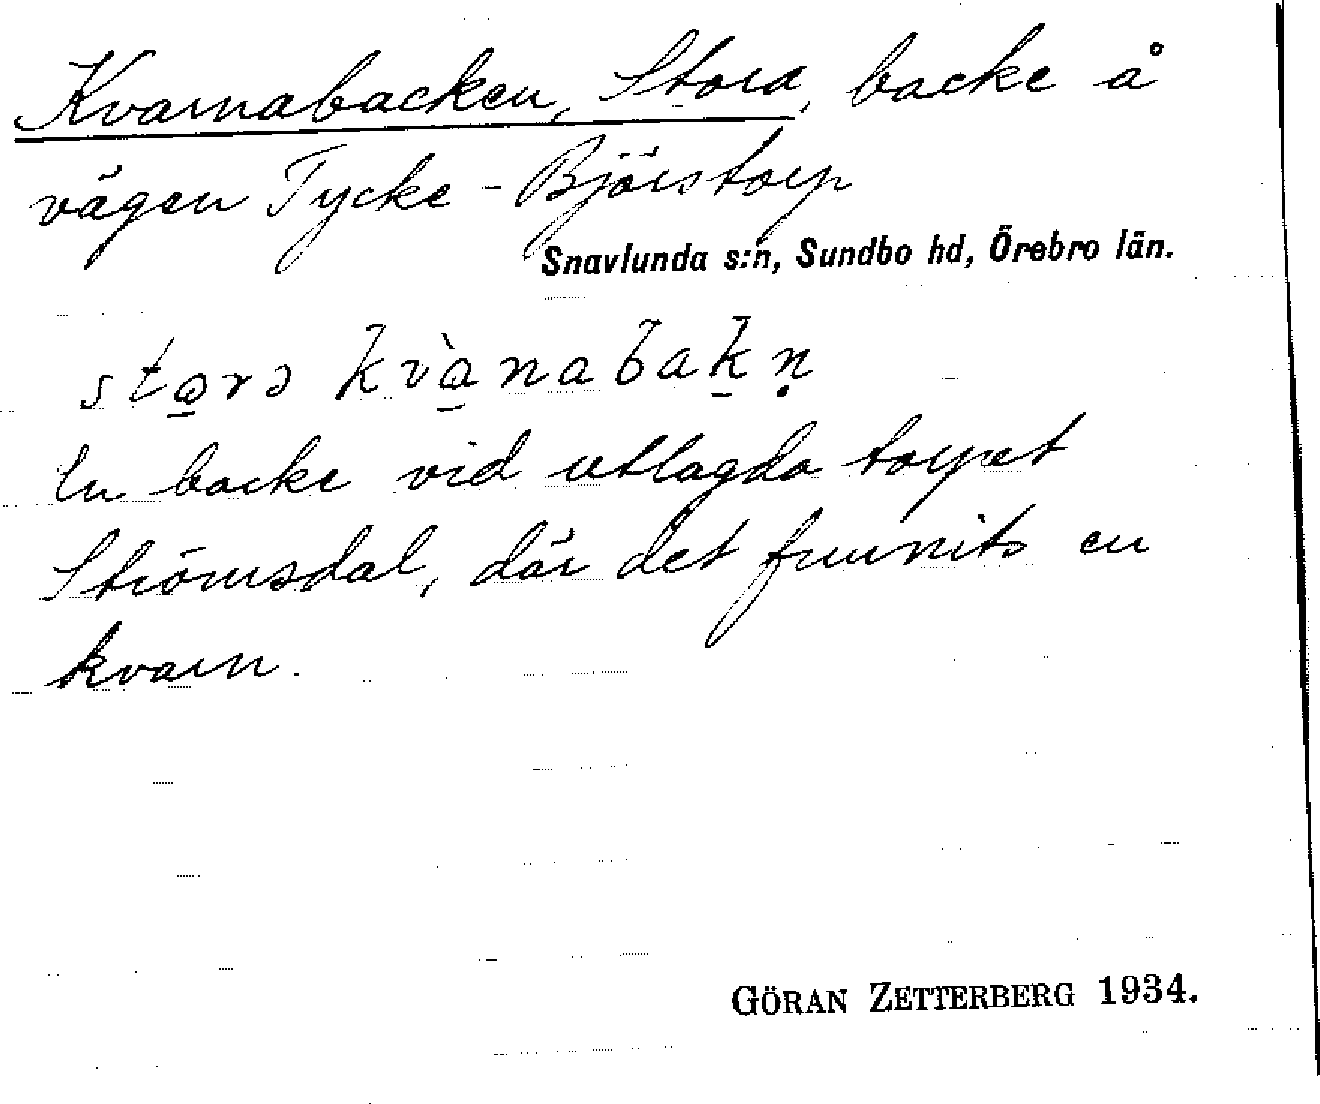 Kvarnabacken, Stora, backe å
vägen Tycke - Björstorp
Snavlunda s:n, Sundbo hd, Örebro län.
En backe vid utlagda torpet
Strömsdal, där det funnits en
kvarn.
GÖRAN ZETTERBERG 1934.